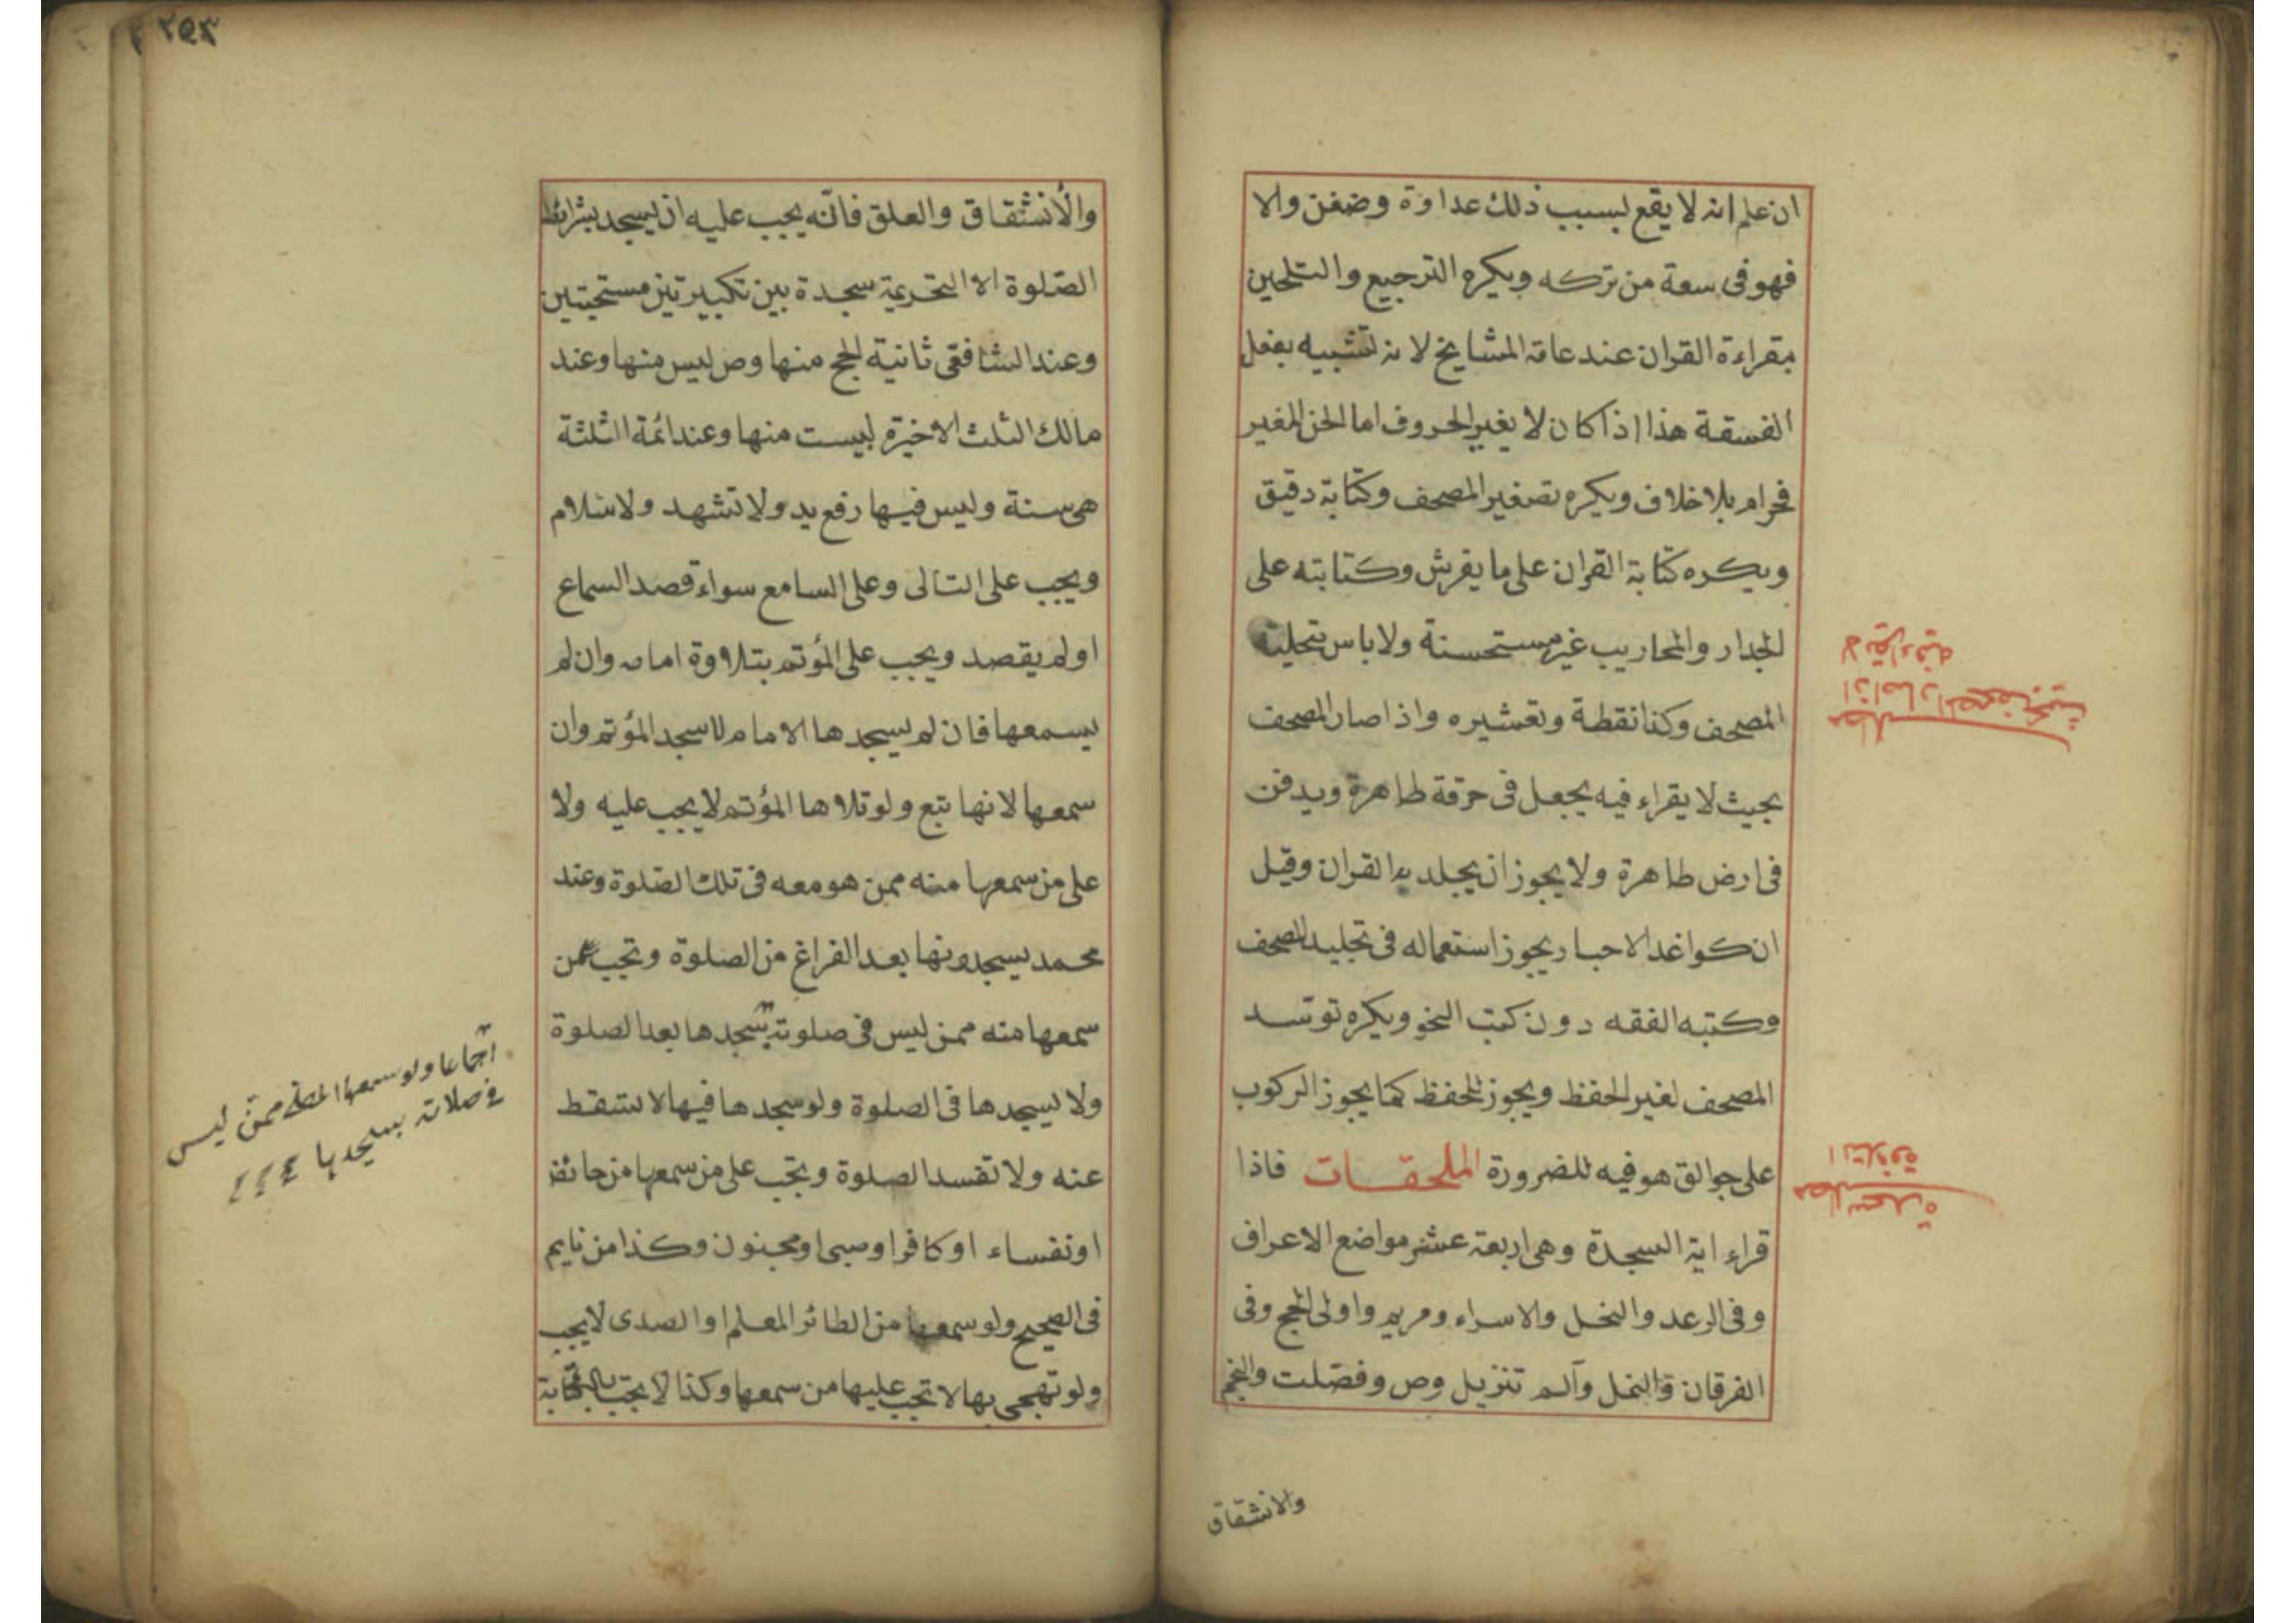 ان علم انه لا يقع بسبب ذلك عداوة وضغن والا
فهو فى سعة من تركه ويكره الترجيع والتلحين
بقراءة القران عند عامة المشايخ لانه تشبيه بفعل
الفسقة هذا اذا كان لا يغير الحروف اما الحن المغير
فحرام بلا خلاف ويكره تصغير المصحف وكتابة دقيق
ويكره كتابة القران على ما يفرش وكتابته على
الجدار والمحاريب غير مستحسنة ولا باس بتحلية
المصحف وكذا نقطة وتعشيره واذا صار المصحف
بحيث لا يقراء فيه يجعل فى خرقة طاهرة ويدفن
فى ارض طاهرة ولا يجوز ان يجلد به القران وقيل
ان كواغد الاحبار يجوز استعماله فى تجليد المصحف
وكتبه الفقه دون كتب النحو ويكره توسد
المصحف لغير الحفظ ويجوز للحفظ كما يجوز الركوب
على جوالق هو فيه للضرورة الملحقات فاذا
قراء اية السجدة وهى اربعة عشر مواضع الاعراف
وفى الرعد والنحل والاسراء ومريم واولى الحج وفى
الفرقان والنمل وآلم تنزيل وص وفصلت والنجم
والانشقاق
مطلب اذا صار المصحف بحيث
لا يقراء فيه
مطلب سجدة
التلاوة
٢٥٣
والأنشقاق والعلق فانّه يجب عليه ان يسجد بشرائط
الصّلوة الا التحريمة سجدة بين تكبيرتين مستحبتين
وعند الشافعى ثانية الحج منها وص ليس منها وعند
مالك الثلث الاخيرة ليست منها وعند ائمة الثلثة
هى سنة وليس فيها رفع يد ولا تشهد ولا سلام
ويجب على التالى وعلى السامع سواء قصد السماع
او لم يقصد ويجب على المؤتم بتلاوة امامه وان لم
يسمعها فان لم يسجدها الامام لا يسجد المؤتم وان
سمعها لانها تبع ولو تلاها المؤتم لا يجب عليه ولا
على من سمعها منه ممن هو معه فى تلك الصّلوة وعند
محمد يسجدونها بعد الفراغ من الصلوة وتجب عمن
سمعها منه ممن ليس فى صلوته يسجدها بعد الصلوة
ولا يسجدها فى الصلوة ولو سجدها فيها لا تسقط
عنه ولا تفسد الصلوة وتجب على من سمعها من حائض
او نفساء او كافر او صبى او مجنون وكذا من نايم
فى الصحيح ولو سمعها من الطائر المعلم او الصدى لا يجب
ولو تهجى بها لا تجب عليها من سمعها وكذا لا تجب بالكتابة
اجماعا ولو سمعها المصلى ممن ليس
فى صلاته يسجدها